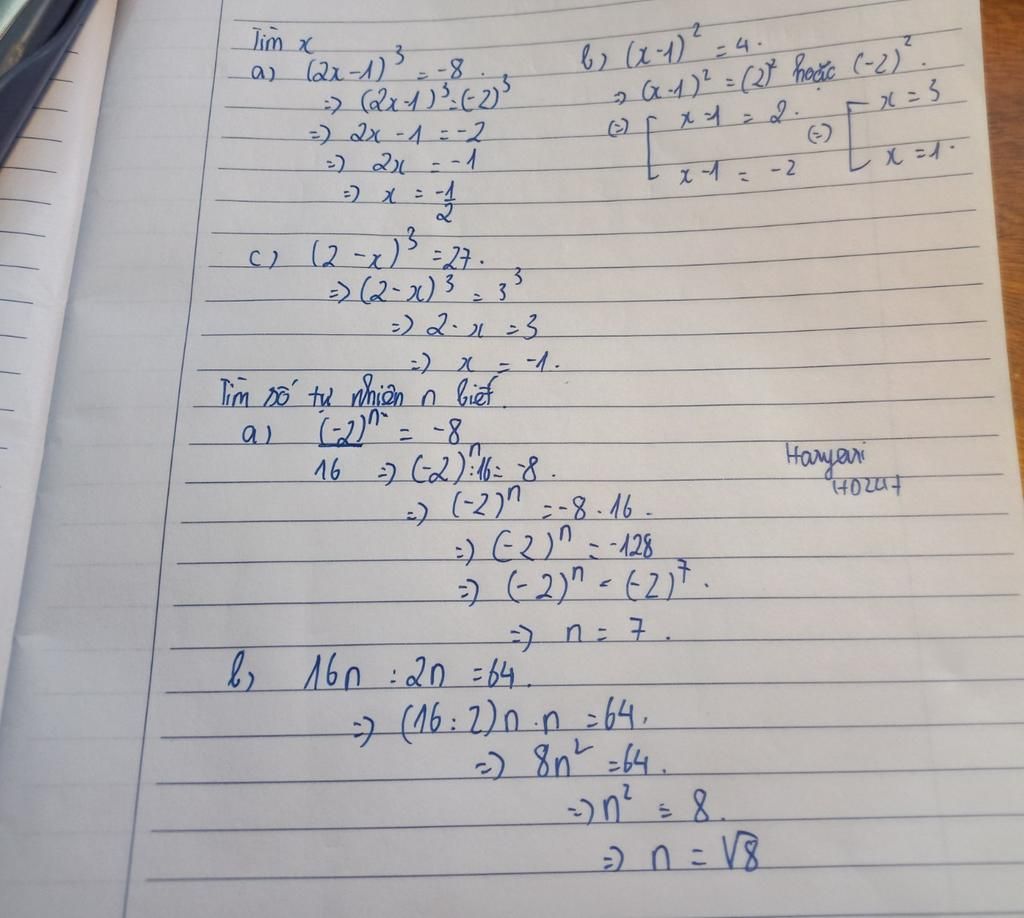 Tìm x
a) (2x-1)³ = -8.
=> (2x-1)³=(-2)³
=> 2x - 1 = -2
=> 2x = -1
=> x = -1/2
b) (x-1)² = 4.
=> (x-1)² = (2)² hoặc (-2)².
(=) [ x-1 = 2. (=) [ x = 3
x-1 = -2 x = 1.
c) (2-x)³ = 27.
=> (2-x)³ = 3³
=> 2-x = 3
=> x = -1.
Tìm số tự nhiên n biết.
a) (-2)ⁿ/16 = -8
=> (-2)ⁿ:16 = -8.
=> (-2)ⁿ = -8 . 16.
=> (-2)ⁿ = -128
=> (-2)ⁿ = (-2)⁷.
=> n = 7.
b, 16n : 2n = 64.
=> (16 : 2)n . n = 64.
=> 8n² = 64.
=> n² = 8.
=> n = √8